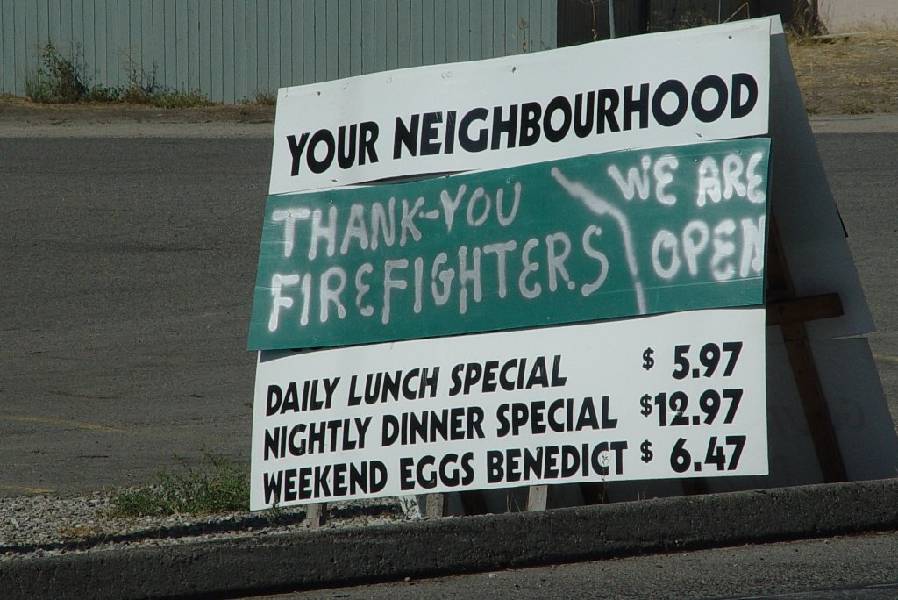 YOUR NEIGHBOURHOOD
THANK-YOU
FIREFIGHTERS
WE ARE
OPEN
DAILY LUNCH SPECIAL $ 5.97
NIGHTLY DINNER SPECIAL $12.97
WEEKEND EGGS BENEDICT $ 6.47